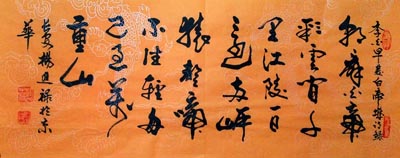 李白早發白帝城詩錄
朝辞白帝
彩雲間千
里江陵一日
還兩岸
猿聲啼
不住輕舟
已過萬
重山
楊進祿於京
華